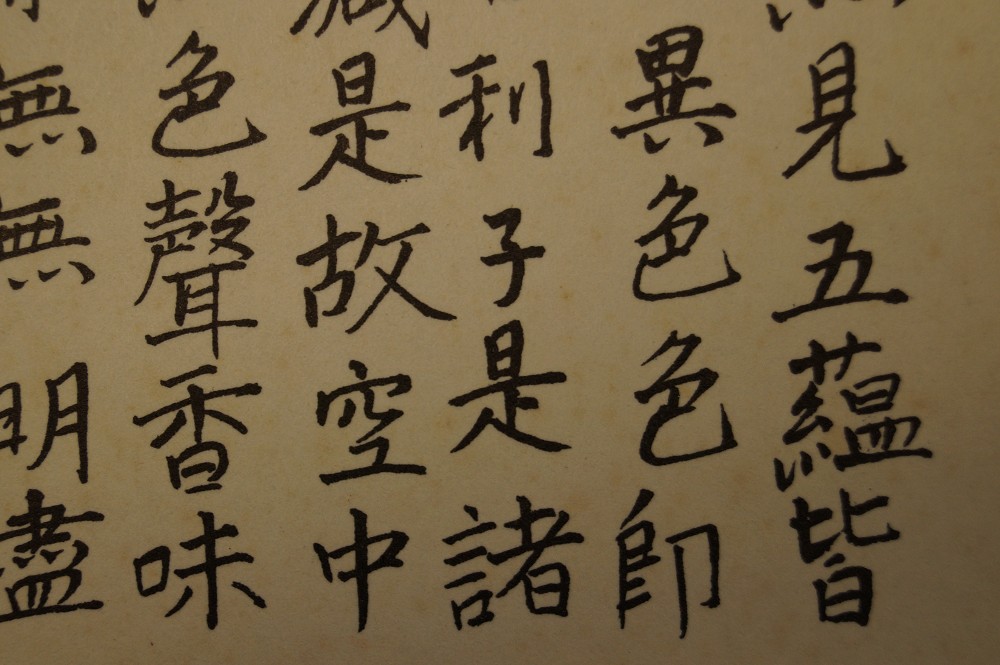 見五蘊皆
異色色即
利子是諸
減是故空中
色聲香味
無無明盡